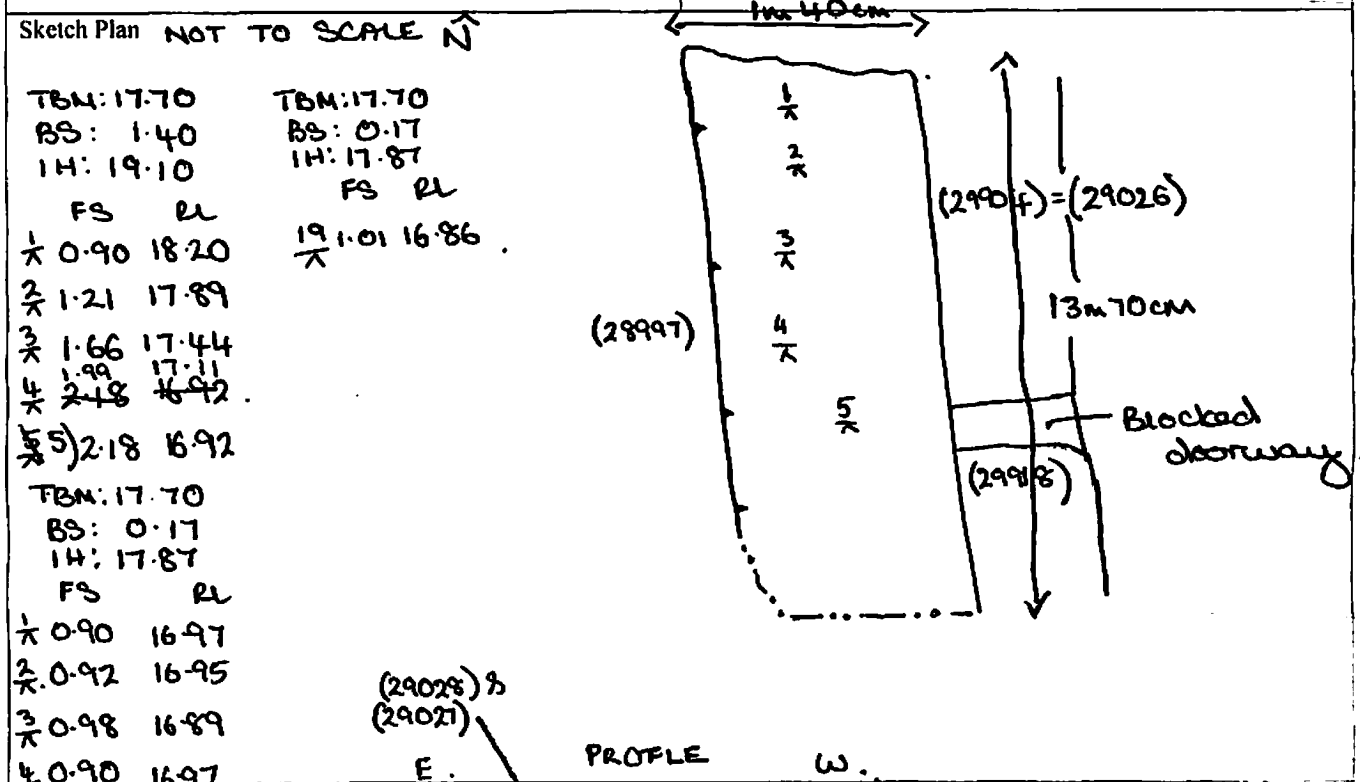 1m 40cm
Sketch Plan NOT TO SCALE N
TBM: 17.70
BS: 1.40
IH: 19.10
FS RL
1 0.90 18.20
2 1.21 17.89
3 1.66 17.44
1.99 17.11
4 2.18 16.92.
5) 2.18 16.92
TBM: 17.70
BS: 0.17
IH: 17.87
FS RL
1 0.90 16.97
2. 0.92 16.95
3 0.98 16.89
4 0.90 16.97
TBM: 17.70
BS: 0.17
IH: 17.87
FS RL
19 1.01 16.86.
1
2
3
4
5
(28997)
(29904)=(29026)
13m 70cm
Blocked
doorway
(29918)
(29028)
(29027)
E. PROFLE W.